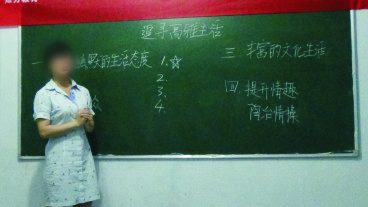 追寻高雅生活
一 默的生活态度
1.☆
2.
3.
4.
三.丰富的文化生活
四.提升情趣
陶冶情操